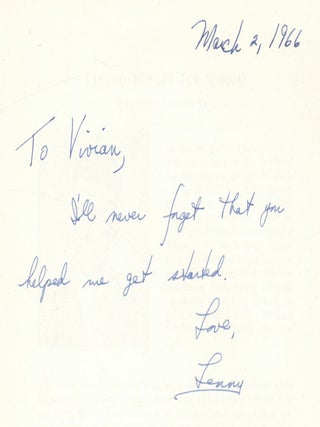 March 2, 1966
To Vivian,
I'll never forget that you
helped me get started.
Love,
Lenny